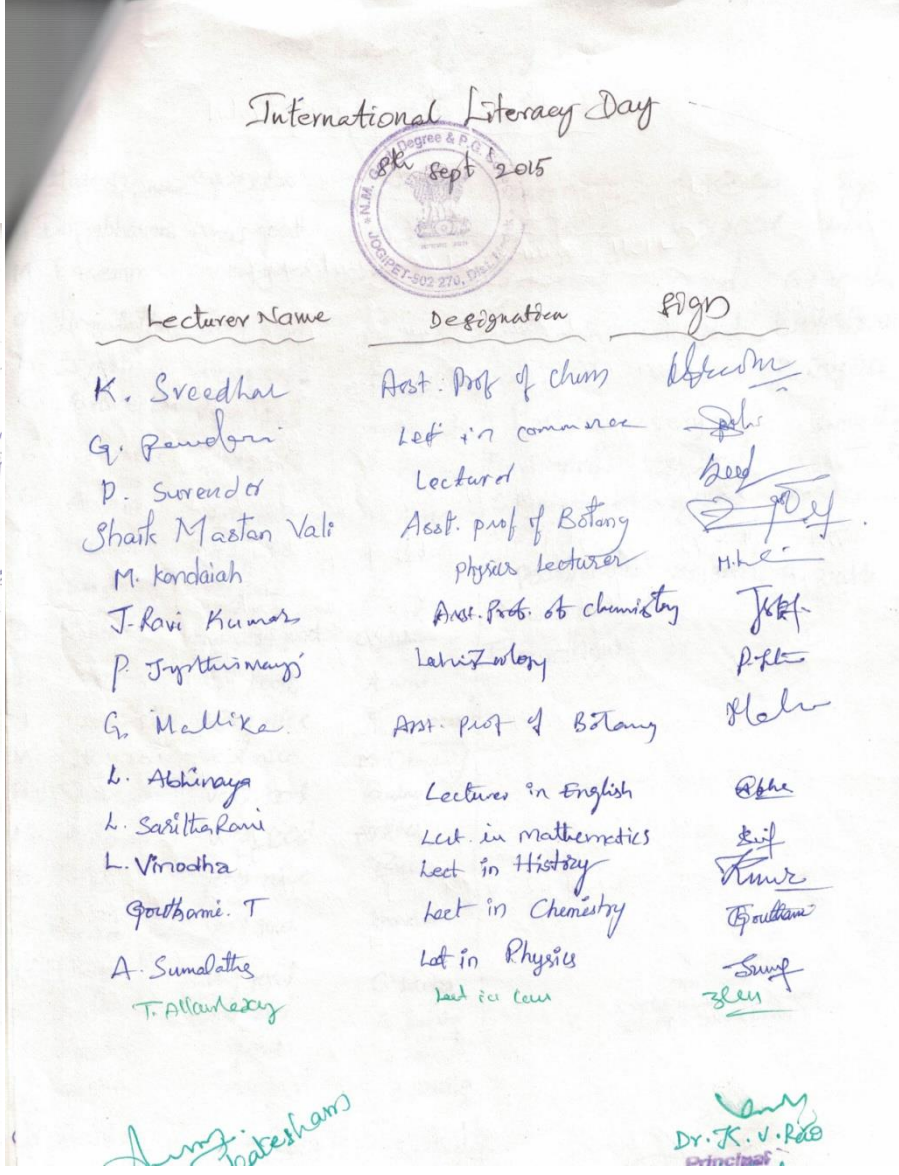 International Literacy Day
8th Sept 2015
N.M. Degree & P.G.
JOGIPET-502 270, Dist.
Lecturer Name Designation Sign
K. Sreedhar Asst. Prof of Chem
G. Lect in commerce
D. Surender Lecturer
Shaik Mastan Vali Asst. prof of Botany
M. Kondaiah Physics Lecturer
J. Ravi Kumar Asst. Prof. of chemistry
P.
G. Mallika Asst. prof of Botany
L. Abhinaya Lecturer in English
L. Saritha Rani Lect. in mathematics
L. Vinodha Lect in History
Gouthami. T Lect in Chemistry Gouthami
A. Sumalatha Lect in Physics
T. Lect in
Dr. K. V. Rao
Principal